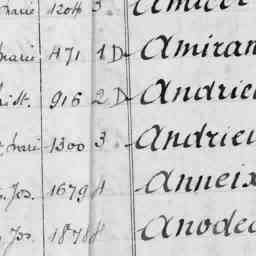 marié 1204 3.
marié 471 1 D Amiran
ist. 916 2 D Andrie
marié 1300 3. Andrieu
Jos. 1679 4 Anneix
Jos. 1878 Anode